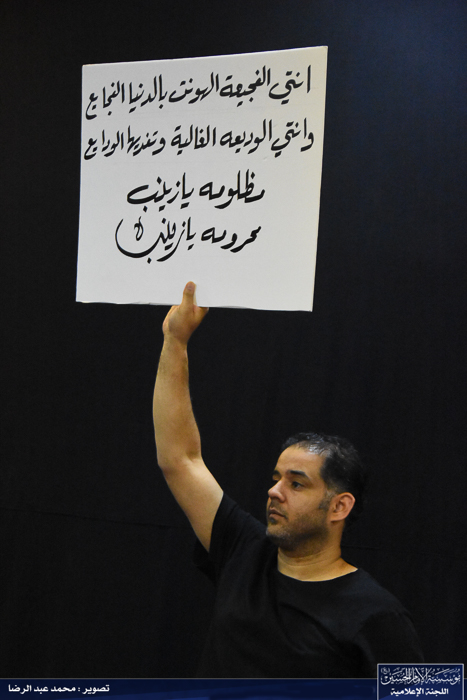 انتي الفجيعة الهونت بالدنيا الفجايع
وانتي الوديعه الغالية وتفديها الودايع
مظلومه يا زينب
محرومه يا زينب
تصوير : محمد عبد الرضا
مؤسسة الإمام الحسين
اللجنة الإعلامية